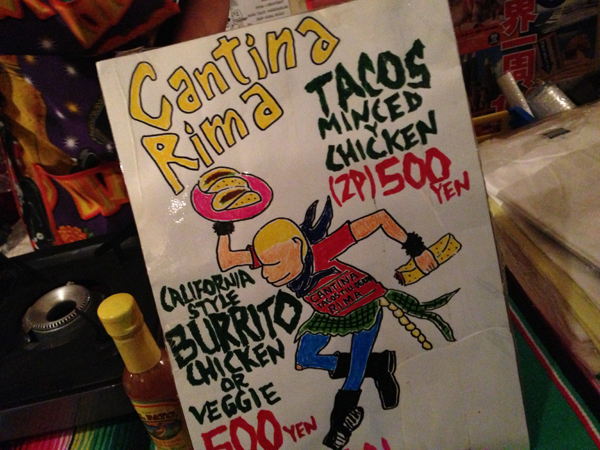 Cantina
Rima
TACOS
MINCED
Y
CHICKEN
(2P) 500
YEN
CANTINA
RIMA
CALIFORNIA
STYLE
BURRITO
CHICKEN
OR
VEGGIE
500 YEN
界一周